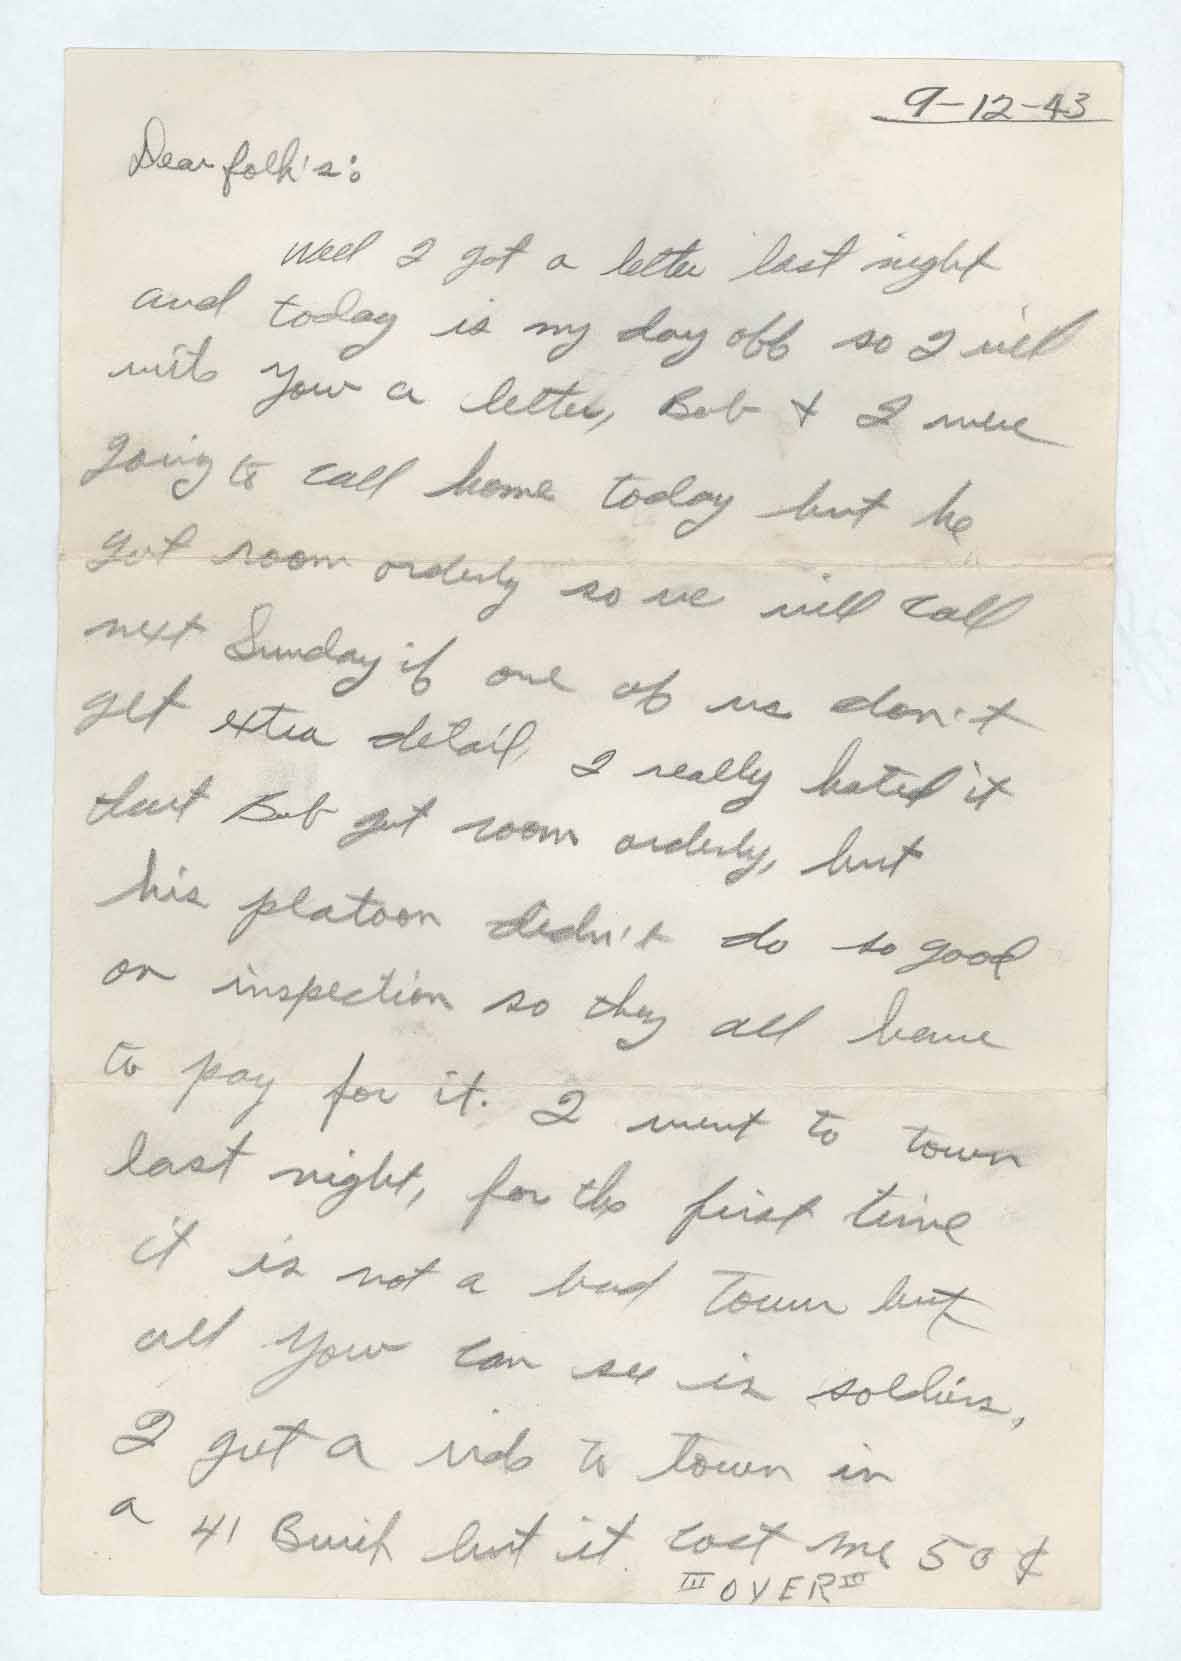 9-12-43
Dear folk's:
Well I got a letter last night
and today is my day off so I will
write you a letter, Bob + I were
going to call home today but he
got room orderly so we will call
next Sunday if one of us don't
get extra detail I really hated it
that Bob got room orderly, but
his platoon didn't do so good
on inspection so they all have
to pay for it. I went to town
last night, for the first time
it is not a bad town but
all you can see is soldiers,
I got a ride to town in
a 41 Buick but it cost me 50¢
III OVER III